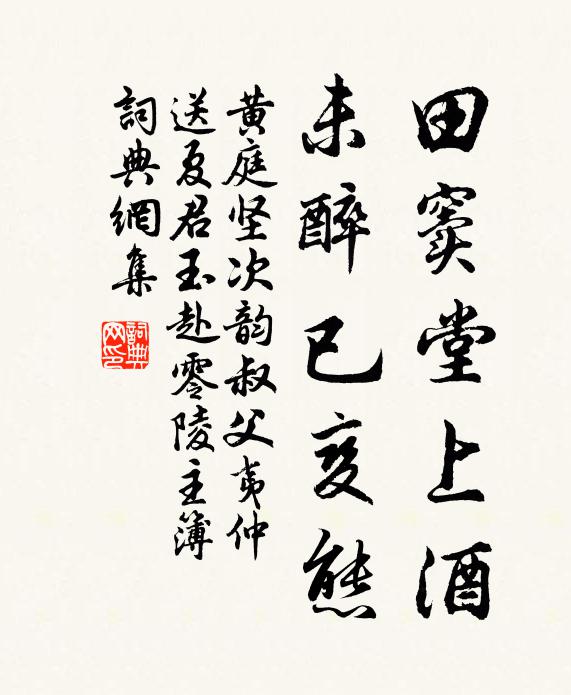 田窦堂上酒
未醉已变態
黄庭坚次韵叔父夷仲
送夏君玉赴零陵主簿
詞典網集
詞典
网印